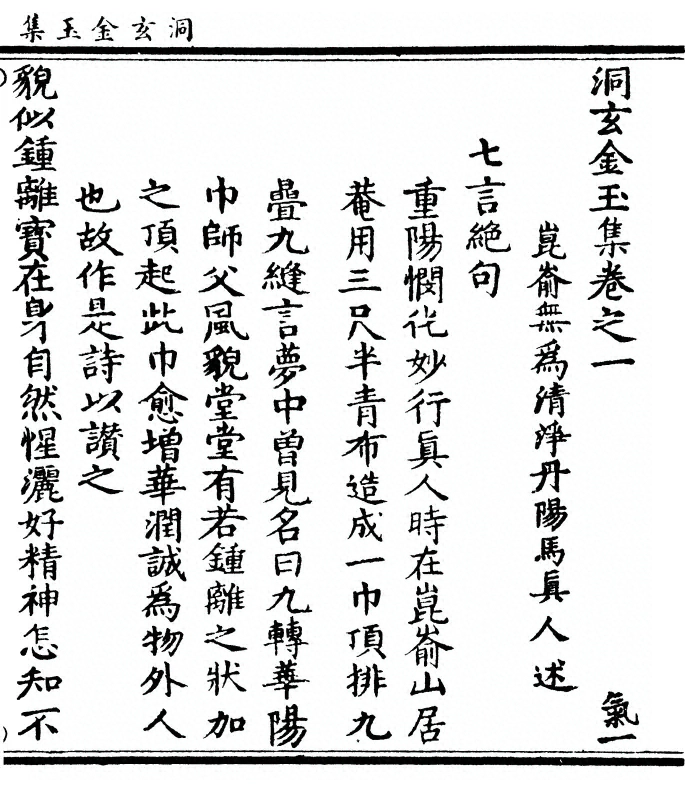 洞玄金玉集
洞玄金玉集卷之一
氣一
崑崳無為清淨丹陽馬眞人述
七言絕句
重陽憫化妙行眞人時在崑崳山居
菴用三尺半青布造成一巾頂排九
疊九縫言夢中曾見名曰九轉華陽
巾師父風貌堂堂有若鍾離之狀加
之頂起此巾愈增華潤誠爲物外人
也故作是詩以讚之
貌似鍾離寳在身自然惺灑好精神怎知不